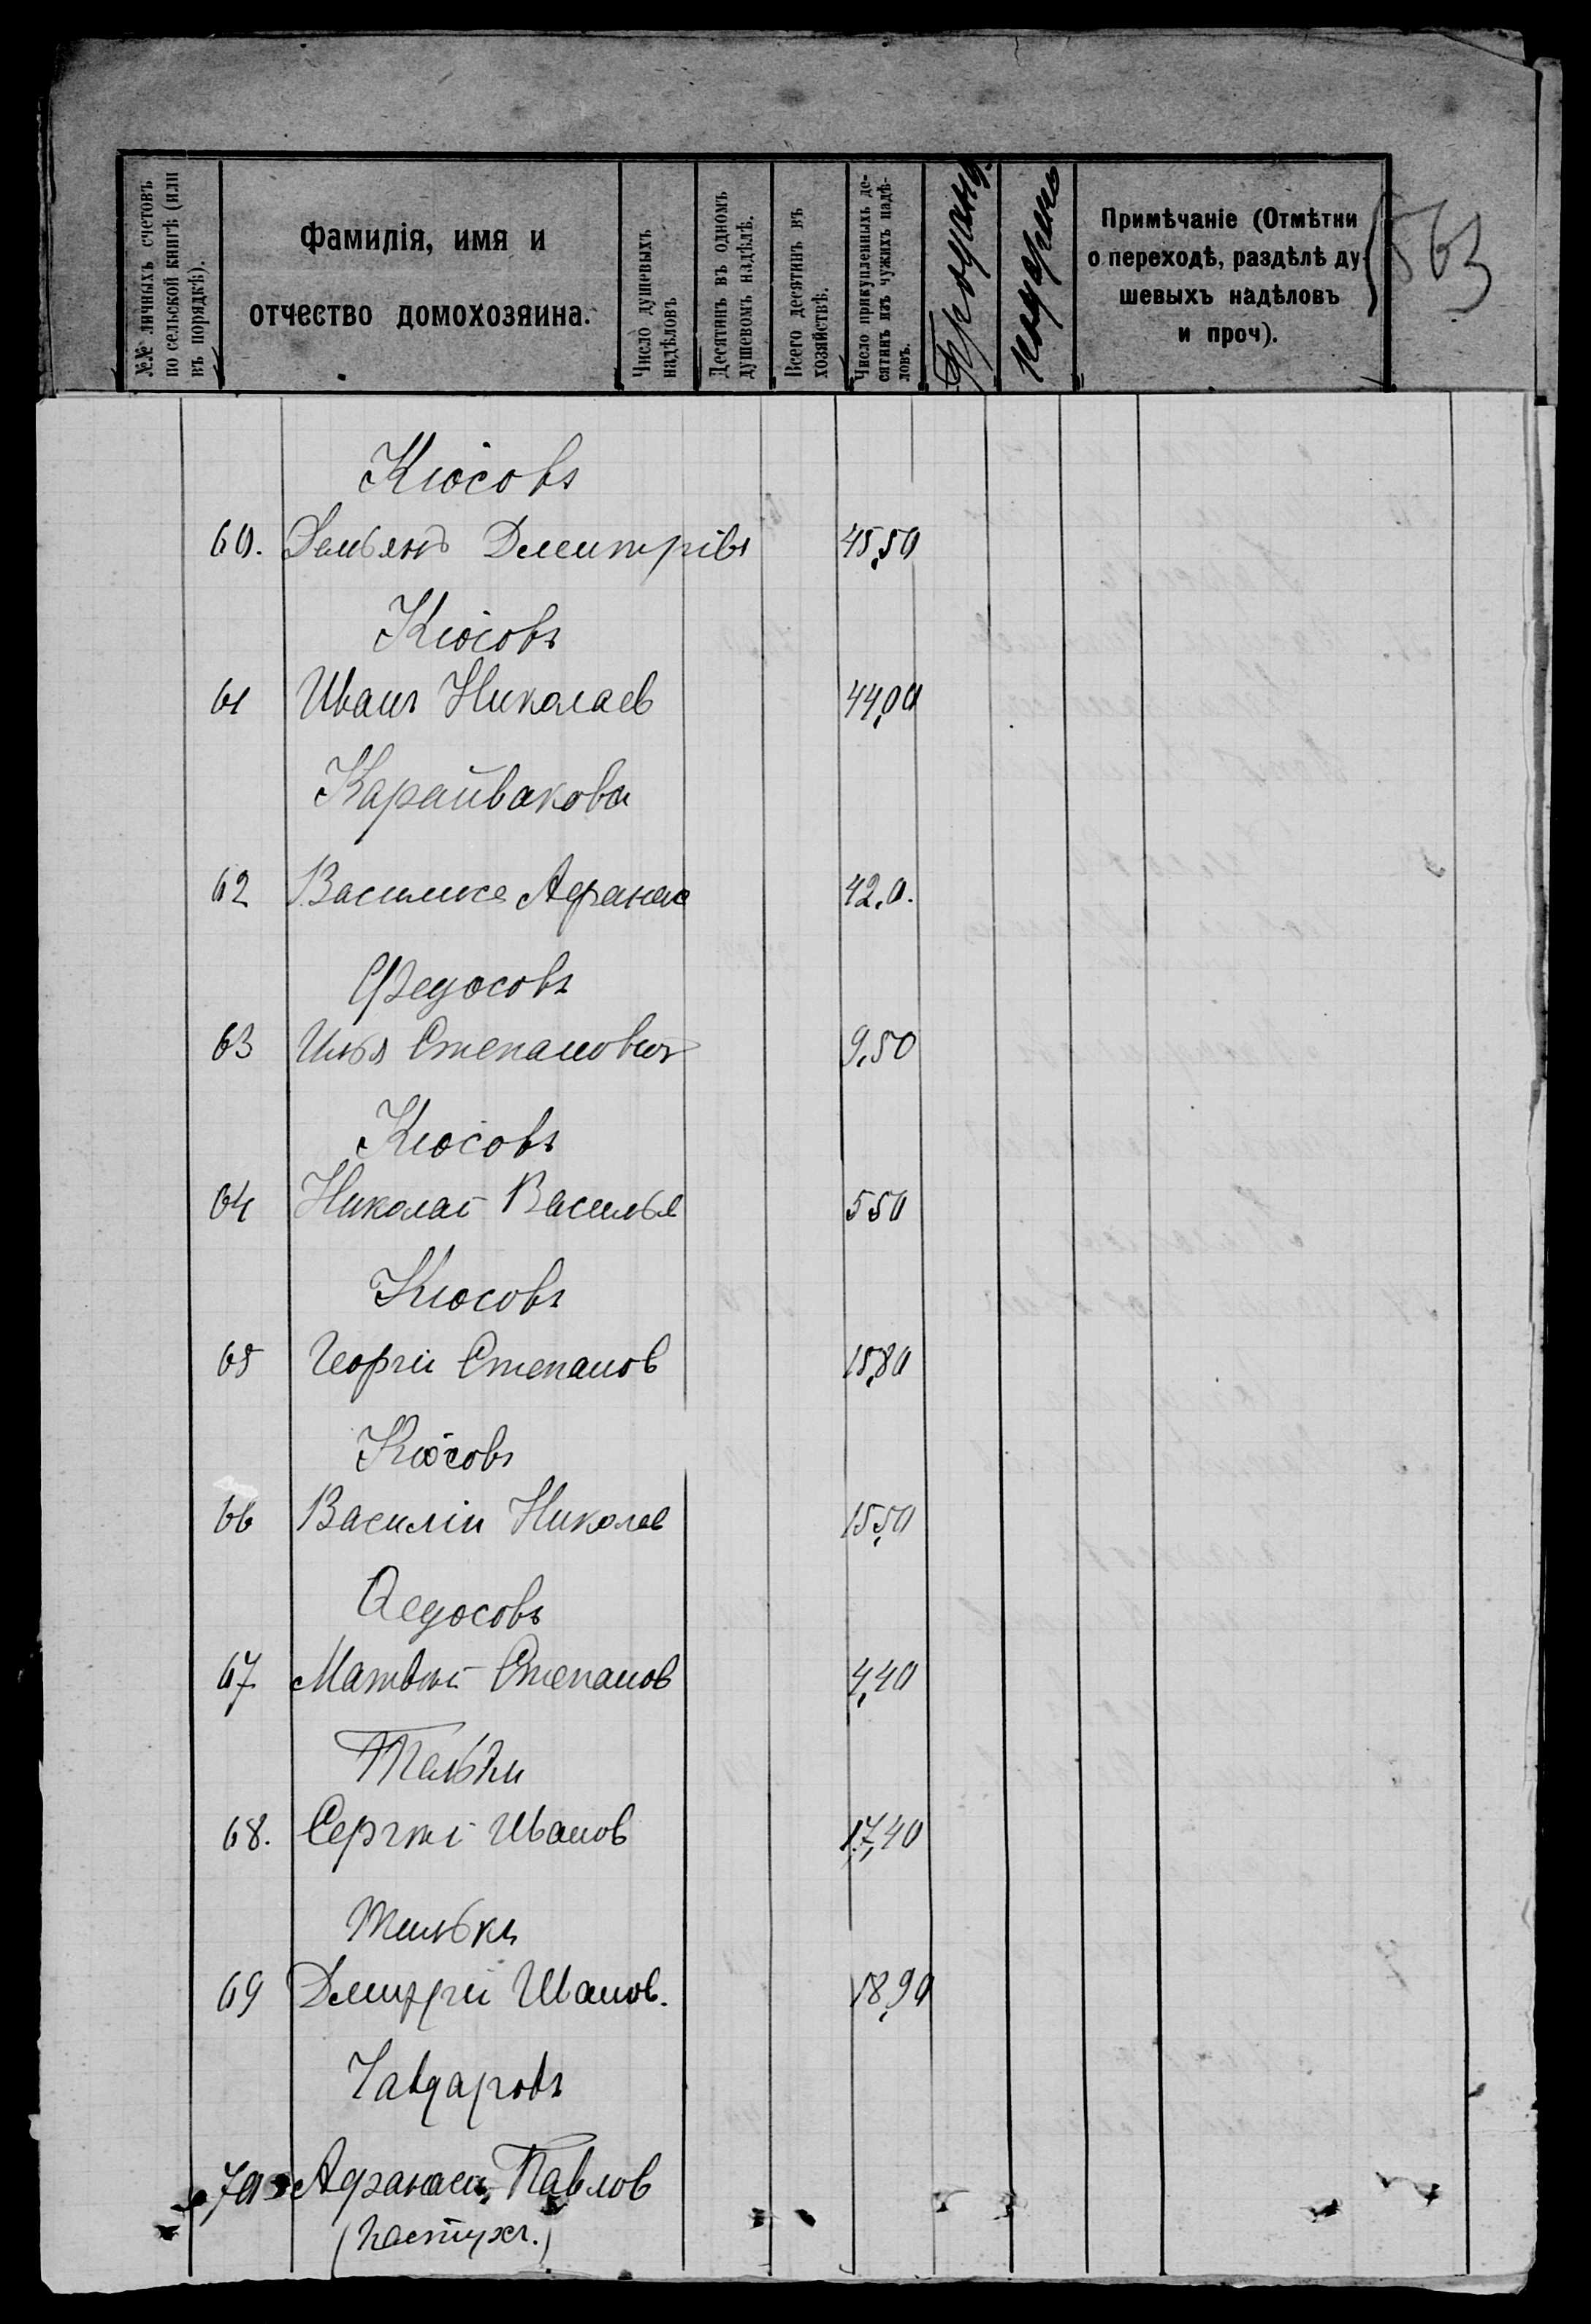 №№ личныхъ счетовъ
по сельской книгѣ (или
въ порядкѣ).
Фамилія, имя и
отчество домохозяина.
Число душевыхъ
надѣловъ
Десятинъ въ одномъ
душевомъ надѣлѣ.
Всего десятинъ въ
хозяйствѣ.
Число прикупленныхъ де-
сятинъ изъ чужихъ надѣ-
ловъ.
Примѣчаніе (Отмѣтки
о переходѣ, раздѣлѣ ду
шевыхъ надѣловъ
и проч).
563
Кюсовъ
60. Демьянъ Дмитрівъ 45,50
Кюсовъ
61 Иванъ Николаев 44,00
Карайвакова
62 Василиса Афанас 42,0.
Федосовъ
63 Илья Степановичъ 9,50
Кюсовъ
64 Николаі Василье 550
Кюсовъ
65 Георгіи Степанов 15,80
Кюсовъ
66 Василіи Николев 15,50
Ѳедосовъ
67 Матвѣі Степанов 4,40
Тельки
68. Сергѣі Иванов 17,40
Тельки
69 Дмитріи Иванов. 18,90
Чавдаровъ
70 Афанаси Павлов
(пастухъ.)